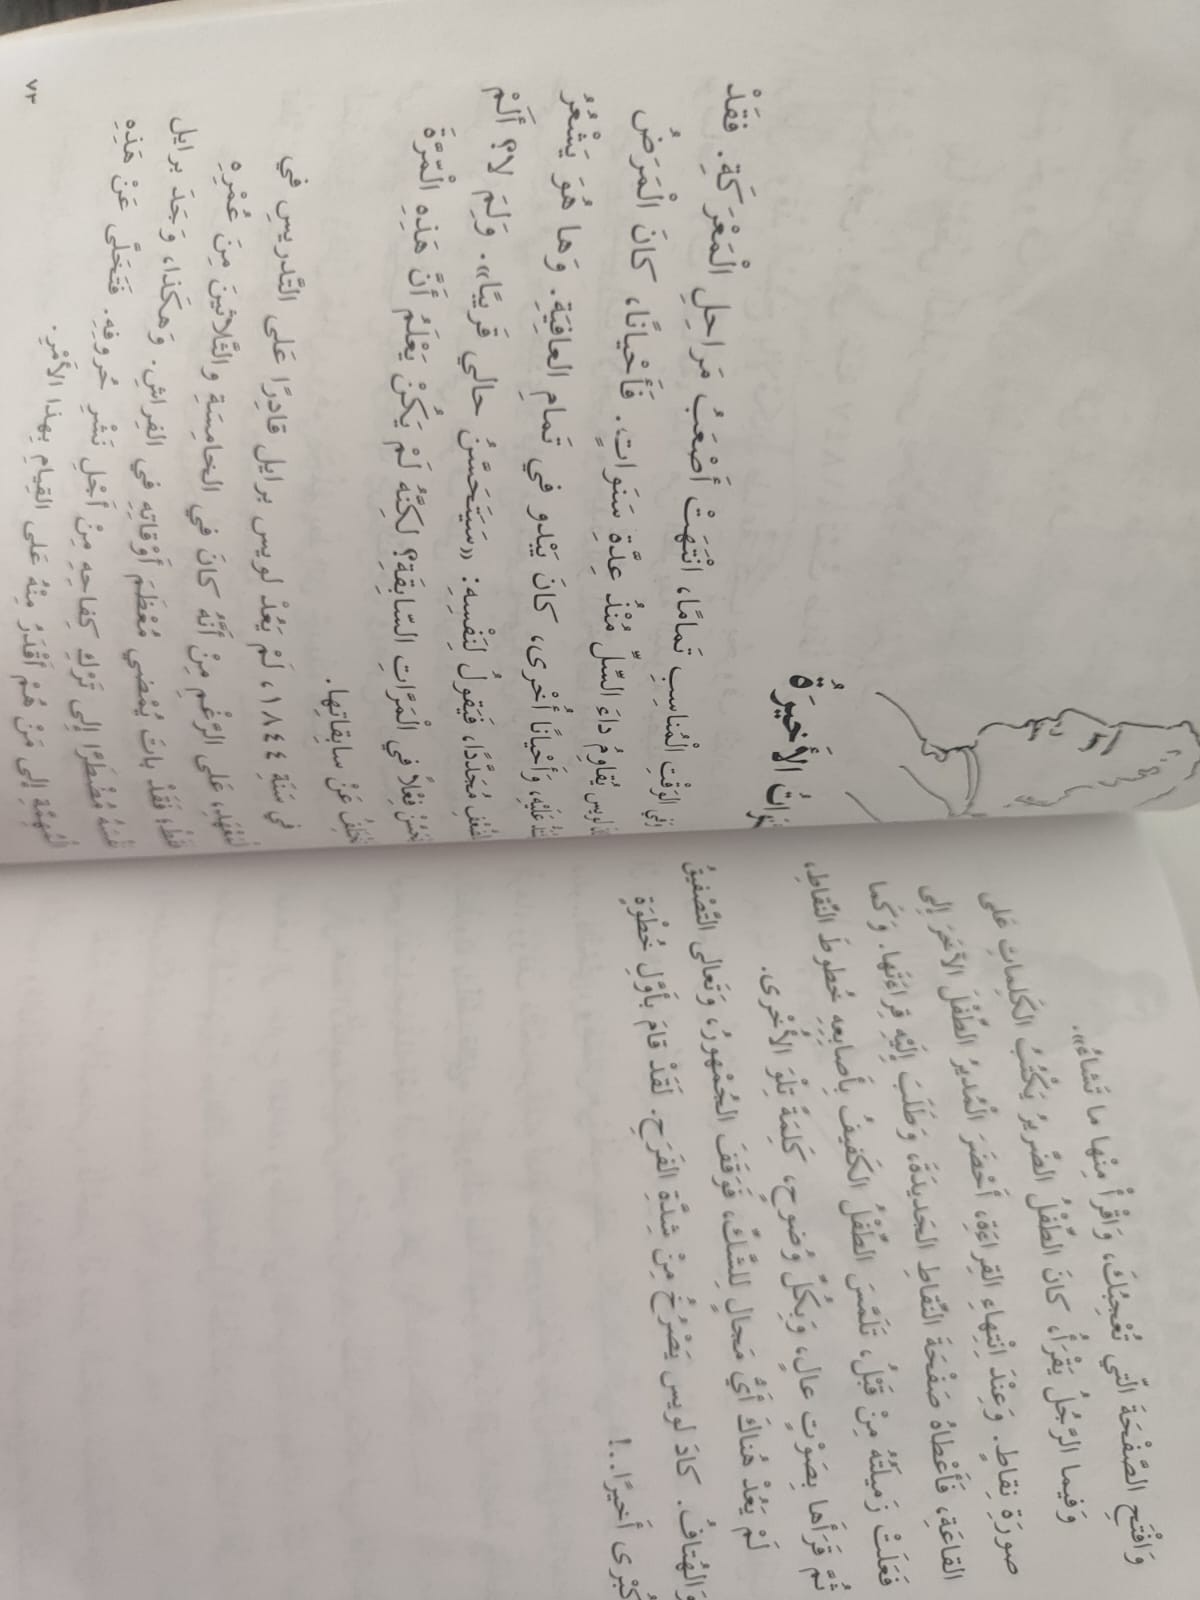 وَافْتَحِ الصَّفْحَةَ الَّتي تُعْجِبُكَ، وَاقْرَأْ مِنْها ما تَشاءُ».
وَفيما الرَّجُلُ يَقْرَأُ، كانَ الطِّفْلُ الضَّريرُ يَكْتُبُ الكَلِماتِ عَلى
صورَةِ نِقاطٍ. وَعِنْدَ انْتِهاءِ القِراءَةِ، أَحْضَرَ الْمُديرُ الطِّفْلَ الآخَرَ إِلى
القاعَةِ، فَأَعْطاهُ صَفْحَةَ النِّقاطِ الجَديدَةَ، وَطَلَبَ إِلَيْهِ قِراءَتَها. وَكَما
فَعَلَتْ زَميلَتُهُ مِنْ قَبْلُ، تَلَمَّسَ الطِّفْلُ الكَفيفُ بِأَصابِعِهِ خُطوطَ النِّقاطِ،
ثُمَّ قَرَأَها بِصَوْتٍ عالٍ، وَبِكُلِّ وُضوحٍ، كَلِمَةً تِلْوَ الأُخْرى.
لَمْ يَعُدْ هُناكَ أَيُّ مَجالٍ لِلشَّكِّ، فَوَقَفَ الجُمْهورُ، وَتَعالى التَّصْفيقُ
وَالهُتافُ. كادَ لويس يَصْرُخُ مِنْ شِدَّةِ الفَرَحِ. لَقَدْ قامَ بِأَوَّلِ خُطْوَةٍ
كُبْرى أَخيرًا..!
الأَخيرَةُ
وَفي الوَقْتِ الْمُناسِبِ تَمامًا، انْتَهَتْ أَصْعَبُ مَراحِلِ الْمَعْرَكَةِ. فَقَدْ
لويس يُقاوِمُ داءَ السُّلِّ مُنْذُ عِدَّةِ سَنَواتٍ. فَأَحْيانًا، كانَ الْمَرَضُ
عَلَيْهِ، وَأَحْيانًا أُخْرى، كانَ يَبْدو في تَمامِ العافِيَةِ. وَها هُوَ يَشْعُرُ
مُجَدَّدًا، فَيَقولُ لِنَفْسِهِ: «سَيَتَحَسَّنُ حالي قَريبًا». وَلِمَ لا؟ أَلَمْ
فِعْلًا في الْمَرّاتِ السّابِقَةِ؟ لكِنَّهُ لَمْ يَكُنْ يَعْلَمُ أَنَّ هَذِهِ الْمَرَّةَ
عَنْ سابِقاتِها.
في سَنَةِ ١٨٤٤، لَمْ يَعُدْ لويس برايل قادِرًا عَلى التَّدريسِ في
عَلى الرَّغْمِ مِنْ أَنَّهُ كانَ في الخامِسَةِ والثَّلاثينَ مِنْ عُمْرِهِ
فَقَدْ باتَ يُمْضي مُعْظَمَ أَوْقاتِهِ في الفِراشِ. وَهكَذا، وَجَدَ برايل
نَفْسَهُ مُضْطَرًّا إِلى تَرْكِ كِفاحِهِ مِنْ أَجْلِ نَشْرِ حُروفِهِ. فَتَخَلّى عَنْ هَذِهِ
الْمُهِمَّةِ إِلى مَنْ هُمْ أَقْدَرُ مِنْهُ عَلى القِيامِ بِهذا الأَمْرِ.
٧٣